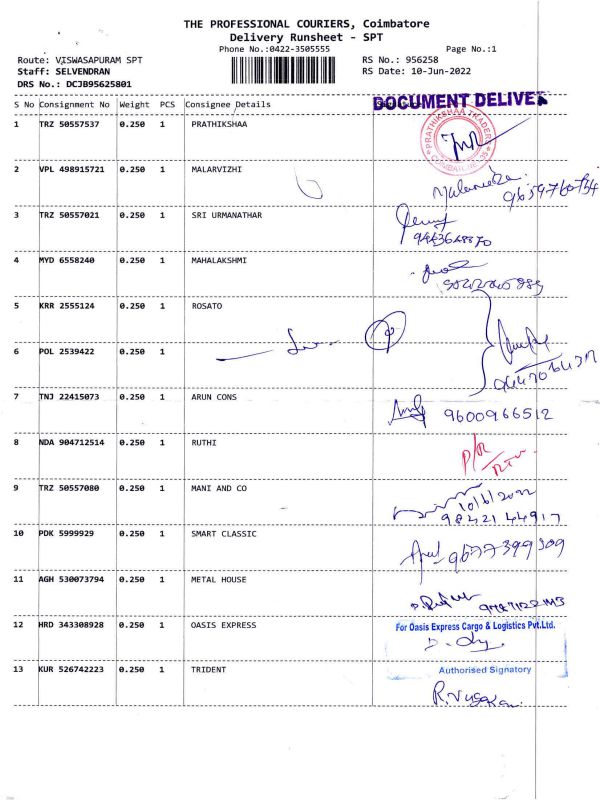 THE PROFESSIONAL COURIERS, Coimbatore
Delivery Runsheet - SPT
Phone No.:0422-3505555
Page No.:1
Route: VISWASAPURAM SPT
RS No.: 956258
Staff: SELVENDRAN
RS Date: 10-Jun-2022
DRS No.: DCJB95625801
S No Consignment No Weight PCS Consignee Details
DOCUMENT DELIVER
1 TRZ 50557537 0.250 1 PRATHIKSHAA
PRATHIKSHAA TRADERS
2 VPL 498915721 0.250 1 MALARVIZHI
3 TRZ 50557021 0.250 1 SRI URMANATHAR
4 MYD 6558240 0.250 1 MAHALAKSHMI
5 KRR 2555124 0.250 1 ROSATO
6 POL 2539422 0.250 1
7 TNJ 22415073 0.250 1 ARUN CONS 9600966512
8 NDA 904712514 0.250 1 RUTHI
9 TRZ 50557080 0.250 1 MANI AND CO 10/6/2022
9842144917
10 PDK 5999929 0.250 1 SMART CLASSIC 9677399309
11 AGH 530073794 0.250 1 METAL HOUSE
12 HRD 343308928 0.250 1 OASIS EXPRESS For Oasis Express Cargo & Logistics Pvt.Ltd.
Authorised Signatory
13 KUR 526742223 0.250 1 TRIDENT